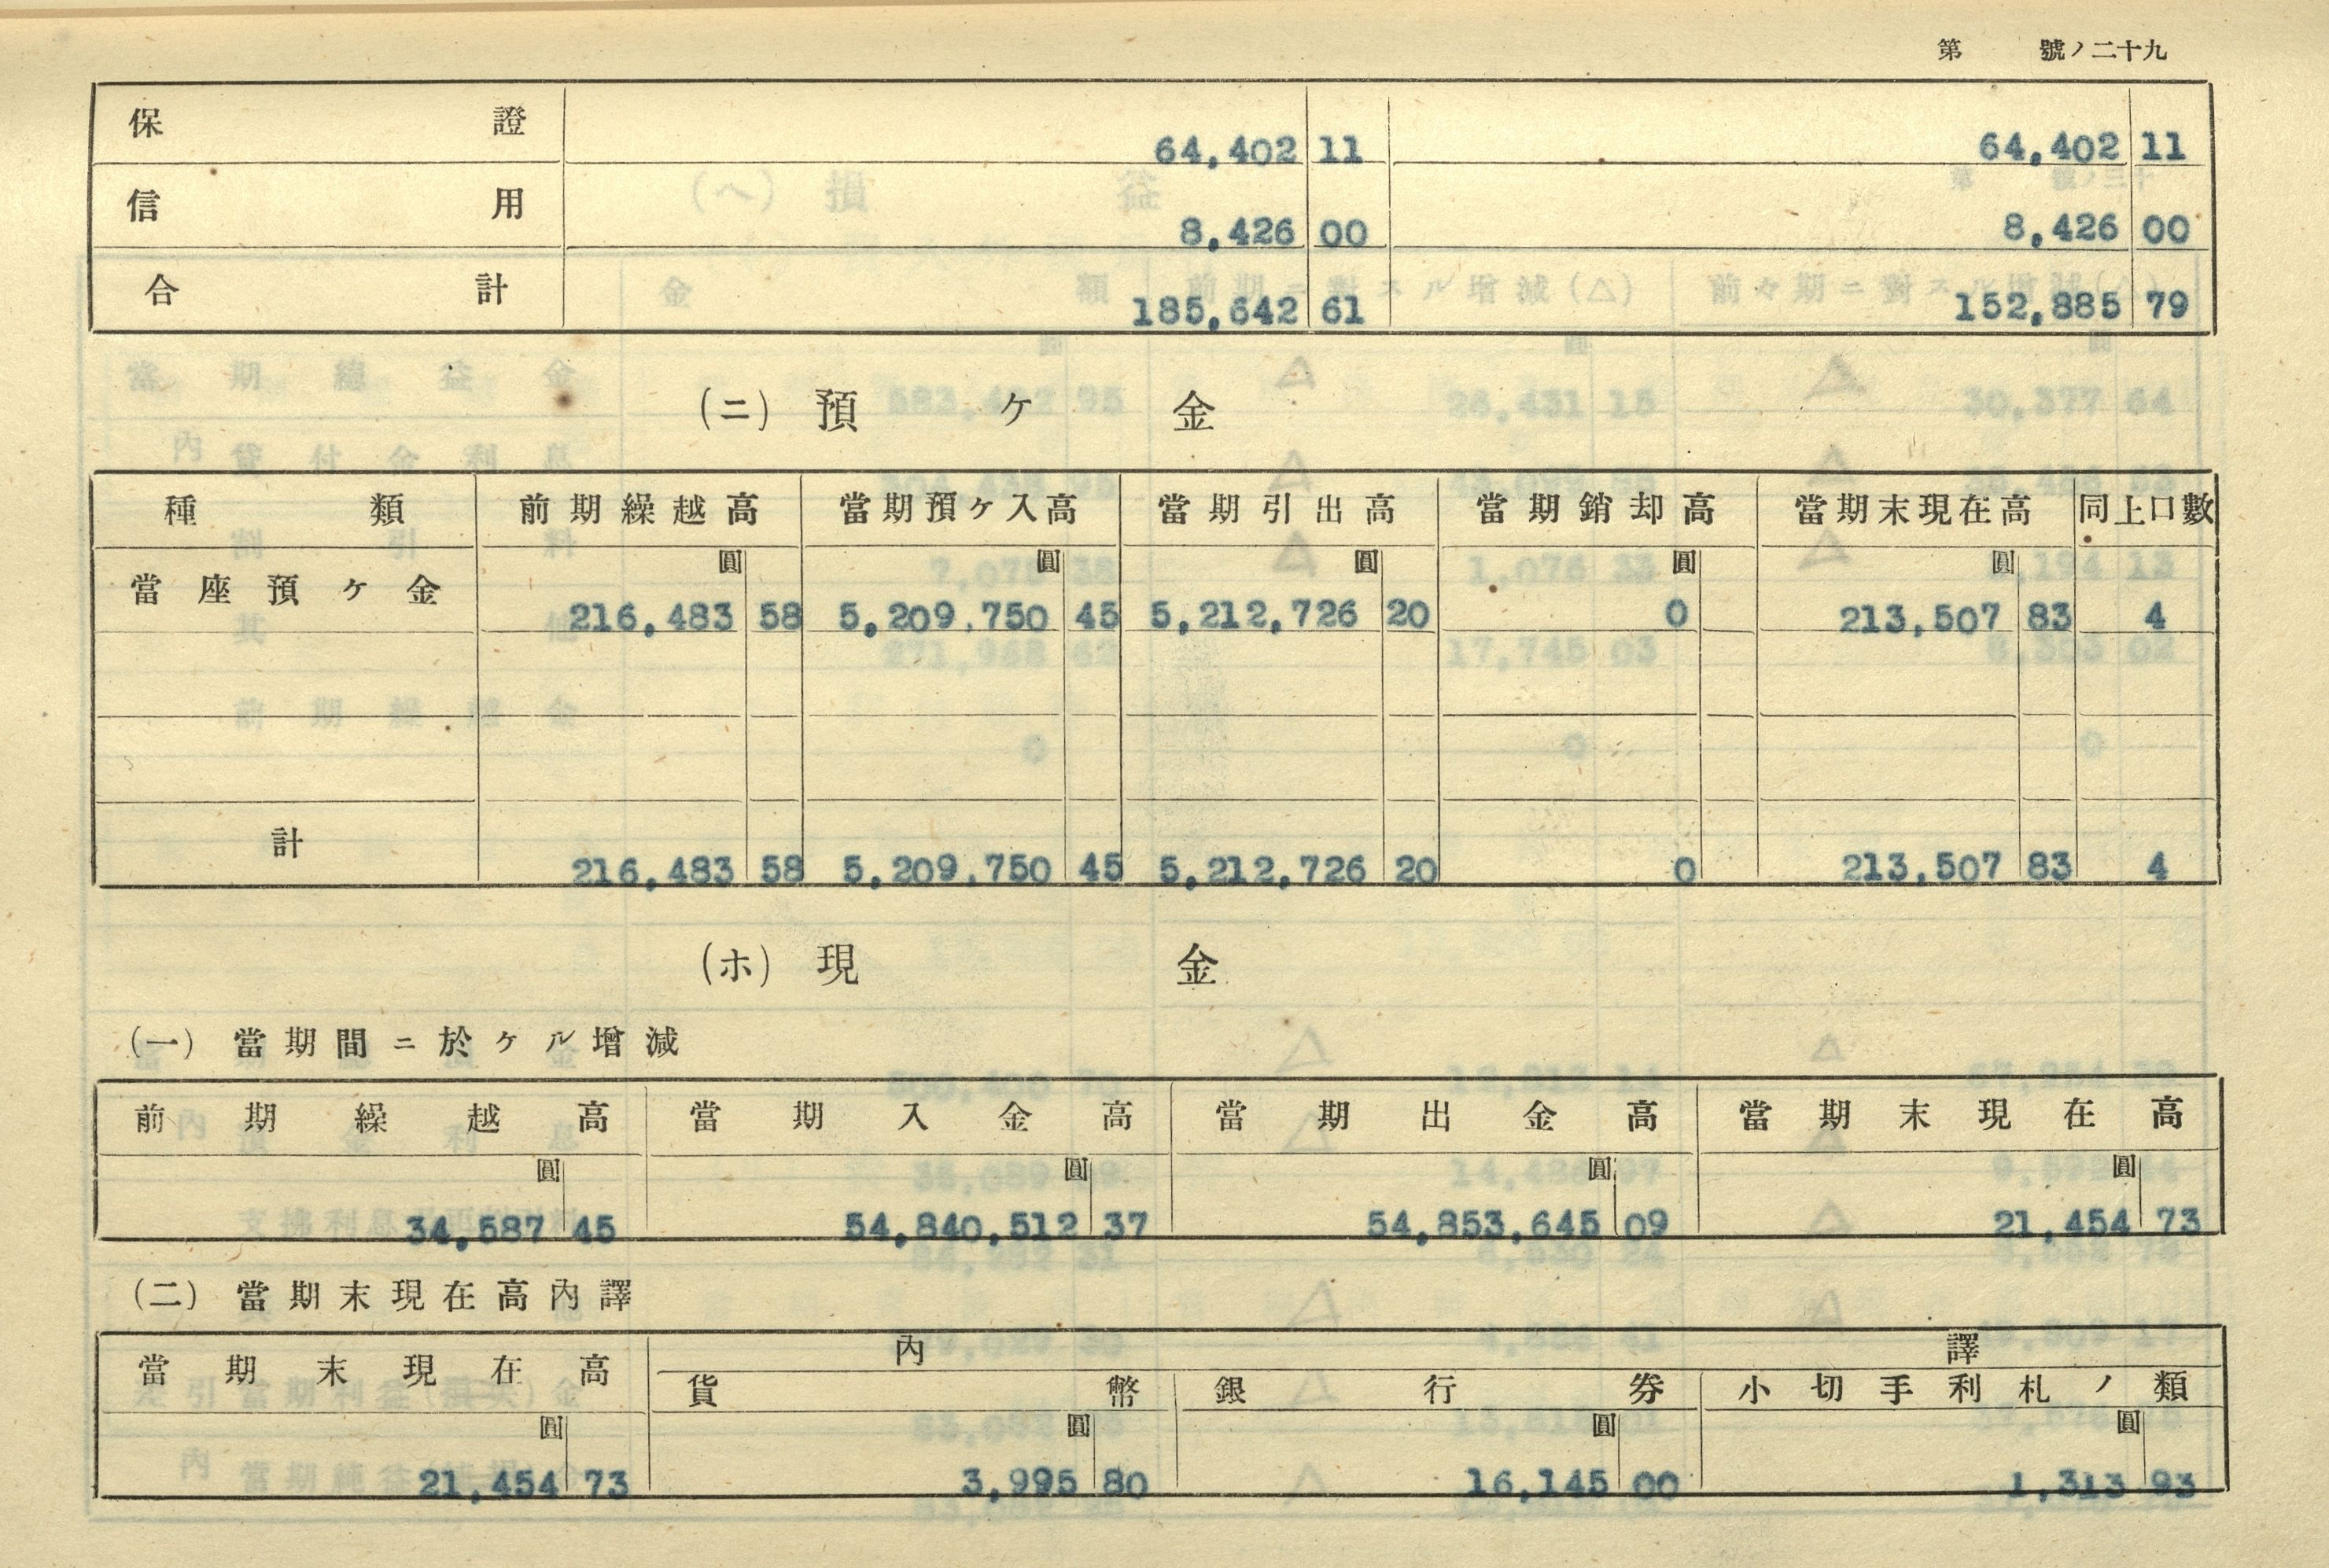 第 號ノ二十九
保證 64,402 11 64,402 11
信用 8,426 00 8,426 00
合計 185,642 61 152,885 79
(ニ) 預ケ金
種類 前期繰越高 當期預ケ入高 當期引出高 當期銷却高 當期末現在高 同上口數
圓 圓 圓 圓 圓
當座預ケ金 216,483 58 5,209,750 45 5,212,726 20 0 213,507 83 4
計 216,483 58 5,209,750 45 5,212,726 20 0 213,507 83 4
(ホ) 現金
(一) 當期間ニ於ケル增減
前期繰越高 當期入金高 當期出金高 當期末現在高
圓 圓 圓 圓
34,587 45 54,840,512 37 54,853,645 09 21,454 73
(二) 當期末現在高內譯
當期末現在高 內譯
貨幣 銀行券 小切手利札ノ類
圓 圓 圓 圓
21,454 73 3,995 80 16,145 00 1,313 93